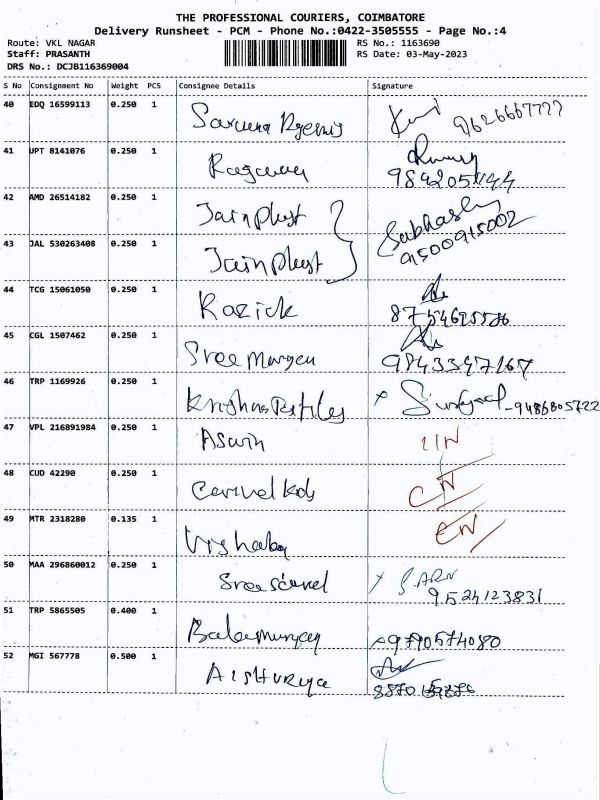 THE PROFESSIONAL COURIERS, COIMBATORE
Delivery Runsheet - PCM - Phone No.:0422-3505555 - Page No.:4
Route: VKL NAGAR RS No.: 1163690
Staff: PRASANTH RS Date: 03-May-2023
DRS No.: DCJB116369004
S No Consignment No Weight PCS Consignee Details Signature
40 EDQ 16599113 0.250 1 9626667777
41 UPT 8141076 0.250 1
42 AMD 26514182 0.250 1 Jain Plyst
43 JAL 530263408 0.250 1 Jain Plyst Subhash 9500915002
44 TCG 15061050 0.250 1 Razick
45 CGL 1507462 0.250 1 Sree Murgan 9843347167
46 TRP 1169926 0.250 1 9486805722
47 VPL 216891984 0.250 1 Aswin
48 CUD 42290 0.250 1 CN
49 MTR 2318280 0.135 1 CN
50 MAA 296860012 0.250 1 9524123831
51 TRP 5865505 0.400 1 Balamurugan 9790574080
52 MGI 567778 0.500 1 Aishwrya